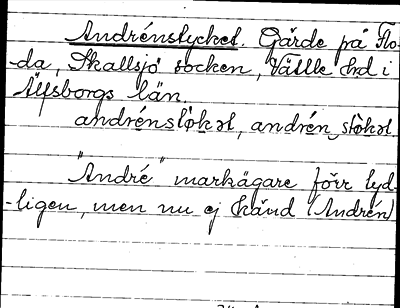 Andrénstycket. Gärde på Flo-
da, Skallsjö socken, Vättle hd i
Älfsborgs län.
andrénstökət, andrén stökət.
"André" markägare förr tyd-
-ligen, men nu ej känd (Andrén)